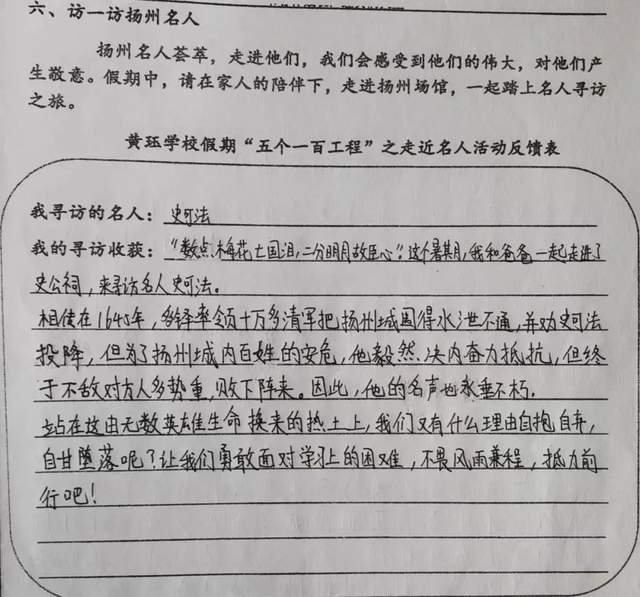 六、访一访扬州名人
扬州名人荟萃，走进他们，我们会感受到他们的伟大，对他们产
生敬意。假期中，请在家人的陪伴下，走进扬州场馆，一起踏上名人寻访
之旅。
黄珏学校假期“五个一百工程”之走近名人活动反馈表
我寻访的名人：史可法
我的寻访收获：“数点梅花亡国泪，二分明月故臣心”。这个暑期，我和爸爸一起走进了
史公祠，来寻访名人史可法。
相传在1645年，多铎率领十万多清军把扬州城围得水泄不通，并劝史可法
投降，但为了扬州城内百姓的安危，他毅然决内奋力抵抗，但终
于不敌对方人多势重，败下阵来。因此，他的名声也永垂不朽。
站在故由无数英雄生命换来的热土上，我们又有什么理由自抱自弃，
自甘堕落呢？让我们勇敢面对学习上的困难，不畏风雨兼程，抵力前
行吧！